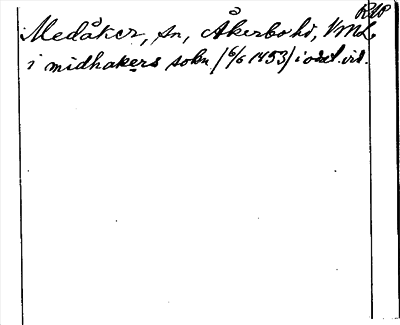 RAP
Medåker, sn, Åkerbo hd, VmL
i midhakers sokn (6/6 1453) i odat. vid.